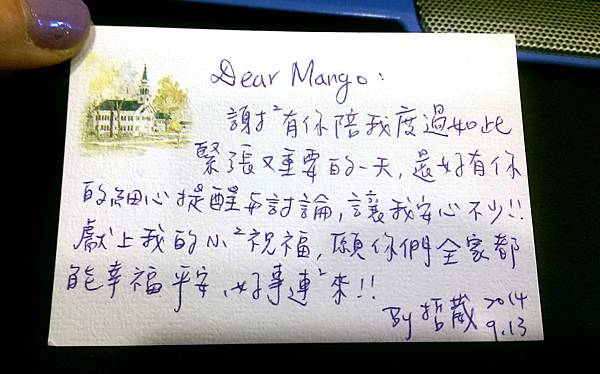 Dear Mango:
謝謝²有你陪我度過如此
緊張又重要的一天,還好有你
的細心提醒與討論,讓我安心不少!!
獻上我的小²祝福,願你們全家都
能幸福平安、好事連²來!!
By 哲葳 2014
9.13